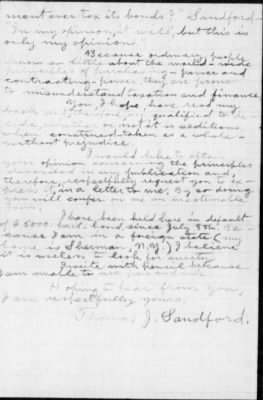 ment over tax its bonds?" Sandford -
In my opinion, it will, but this is
only my opinion.
Because ordinary people
know so little about the world-wide
principles of purchasing-power and
contracting-power they are prone
to misunderstand taxation and finance.
You, I hope, have read my
book and therefore are qualified to de-
cide, whether or not it is seditious
when construed taken as a whole
without prejudice.
I would like to obtain
your opinion concerning the principles
described in my publication and
therefore respectfully request you to ex-
press it in a letter to me. By so doing
you will confer on me an inestimable
I have been held here in default
of $5000. bail-bond, since July 8th. Be-
cause I am in a foreign state (my
home is Sherman, N.Y.) I believe
it is useless to look for surety.
I write with pencil because
I am unable to
Hoping to hear from you,
I am respectfully yours,
Thomas J. Sandford.